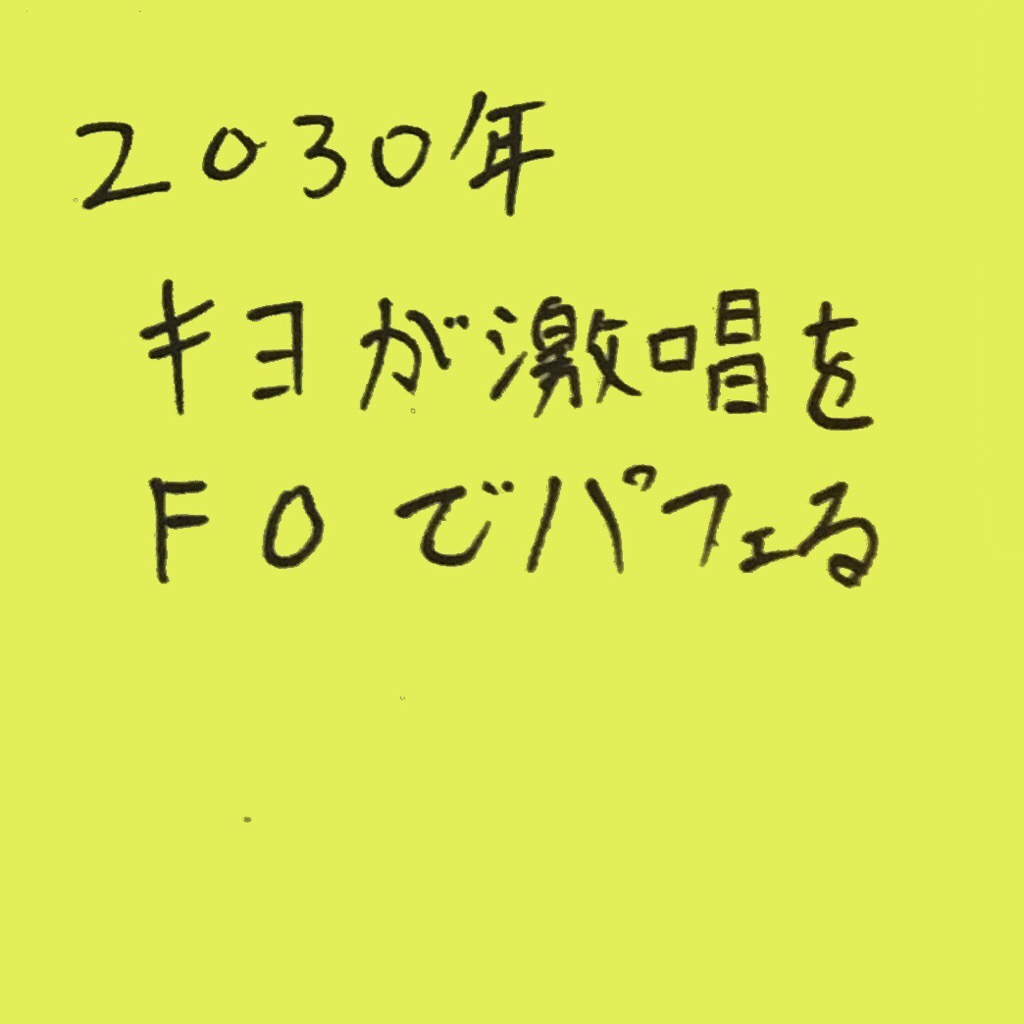 2030年
キヨが激唱を
FOでパフェる